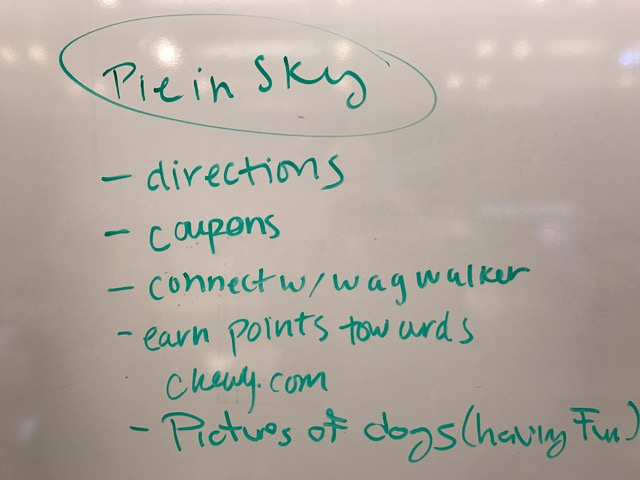 Pie in Sky
- directions
- coupons
- connect w/ wag walker
- earn points towards
chewy.com
- Pictures of dogs (having Fun)